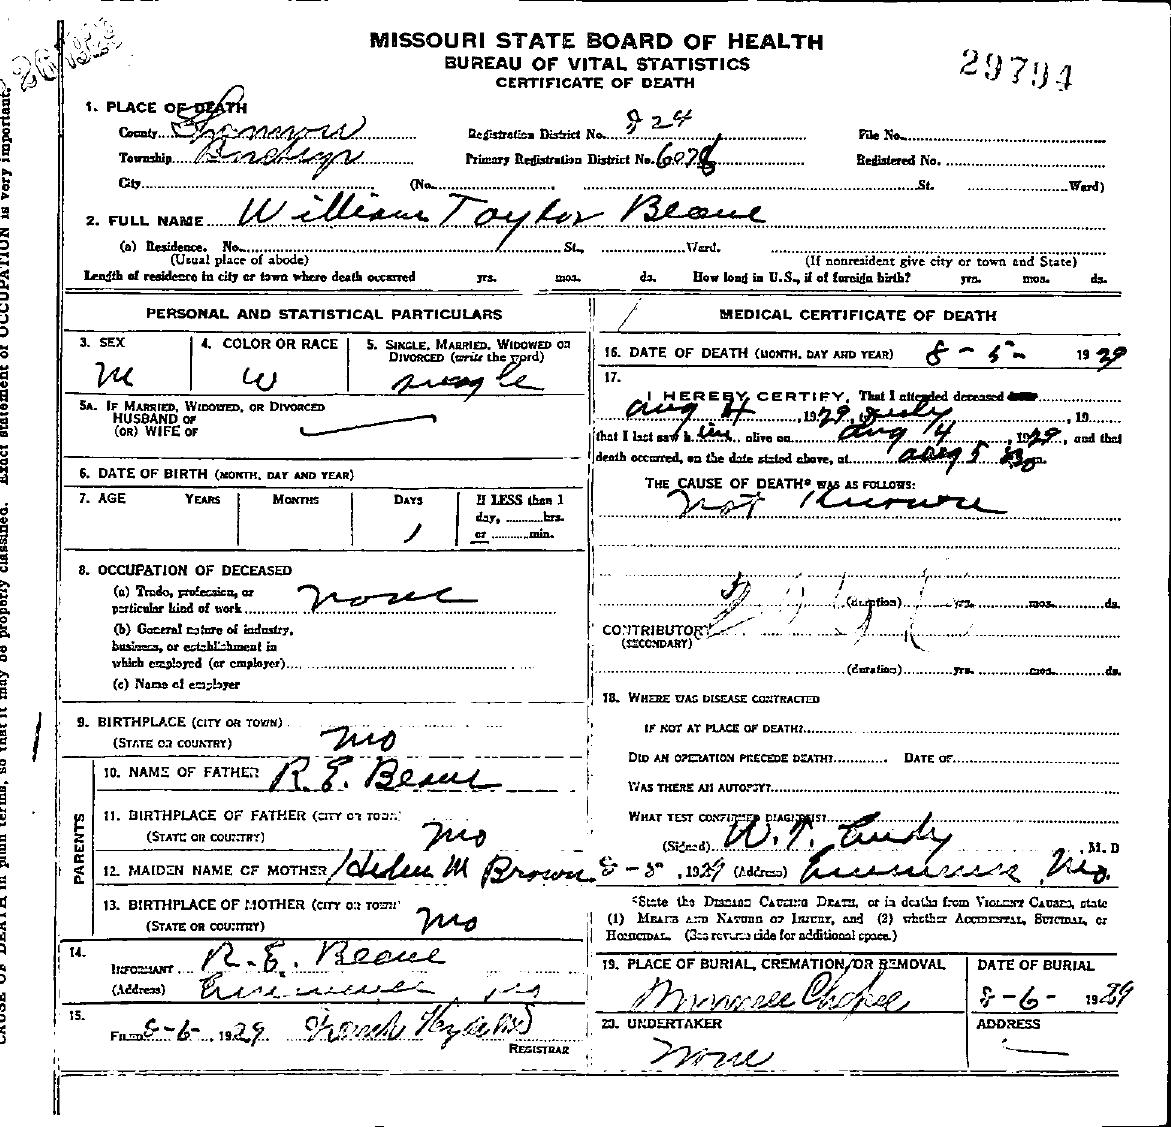 MISSOURI STATE BOARD OF HEALTH
BUREAU OF VITAL STATISTICS
CERTIFICATE OF DEATH
29794
1. PLACE OF DEATH
County Shannon Registration District No. 824 File No.
Township Primary Registration District No. 6078 Registered No.
City (No. St. Ward)
2. FULL NAME William Taylor Beane
(a) Residence. No. St., Ward.
(Usual place of abode) (If nonresident give city or town and State)
Length of residence in city or town where death occurred yrs. mos. ds. How long in U.S., if of foreign birth? yrs. mos. ds.
PERSONAL AND STATISTICAL PARTICULARS
3. SEX 4. COLOR OR RACE 5. SINGLE, MARRIED, WIDOWED OR
DIVORCED (write the word)
M W single
5A. IF MARRIED, WIDOWED, OR DIVORCED
HUSBAND OF
(OR) WIFE OF
6. DATE OF BIRTH (MONTH, DAY AND YEAR)
7. AGE YEARS MONTHS DAYS If LESS than 1
day, hrs.
1 or min.
8. OCCUPATION OF DECEASED
(a) Trade, profession, or
particular kind of work none
(b) General nature of industry,
business, or establishment in
which employed (or employer)
(c) Name of employer
9. BIRTHPLACE (CITY OR TOWN)
(STATE OR COUNTRY) Mo
PARENTS
10. NAME OF FATHER R. E. Beane
11. BIRTHPLACE OF FATHER (CITY OR TOWN)
(STATE OR COUNTRY) Mo
12. MAIDEN NAME OF MOTHER Helen M Brown
13. BIRTHPLACE OF MOTHER (CITY OR TOWN)
(STATE OR COUNTRY) Mo
14.
INFORMANT R. E. Beane
(Address) Eminence Mo
15.
FILED 8-6-, 1929
REGISTRAR
MEDICAL CERTIFICATE OF DEATH
16. DATE OF DEATH (MONTH, DAY AND YEAR) 8-5- 1929
17.
I HEREBY CERTIFY, That I attended deceased
Aug 4, 1929, 19
that I last saw him alive on Aug 4, 1929, and that
death occurred, on the date stated above, at Aug 5 m.
THE CAUSE OF DEATH* WAS AS FOLLOWS:
Not Known
(duration) yrs. mos. ds.
CONTRIBUTORY
(SECONDARY)
(duration) yrs. mos. ds.
18. WHERE WAS DISEASE CONTRACTED
IF NOT AT PLACE OF DEATH?
DID AN OPERATION PRECEDE DEATH? DATE OF
WAS THERE AN AUTOPSY?
WHAT TEST CONFIRMED DIAGNOSIS?
(Signed) W. T. Eudy, M. D
8-5-, 1929 (Address) Eminence Mo.
*State the DISEASE CAUSING DEATH, or in deaths from VIOLENT CAUSES, state
(1) MEANS AND NATURE OF INJURY, and (2) whether ACCIDENTAL, SUICIDAL, or
HOMICIDAL. (See reverse side for additional space.)
19. PLACE OF BURIAL, CREMATION, OR REMOVAL DATE OF BURIAL
Chapel 8-6- 1929
20. UNDERTAKER ADDRESS
None
CAUSE OF DEATH in plain terms, so that it may be properly classified. Exact statement of OCCUPATION is very important.